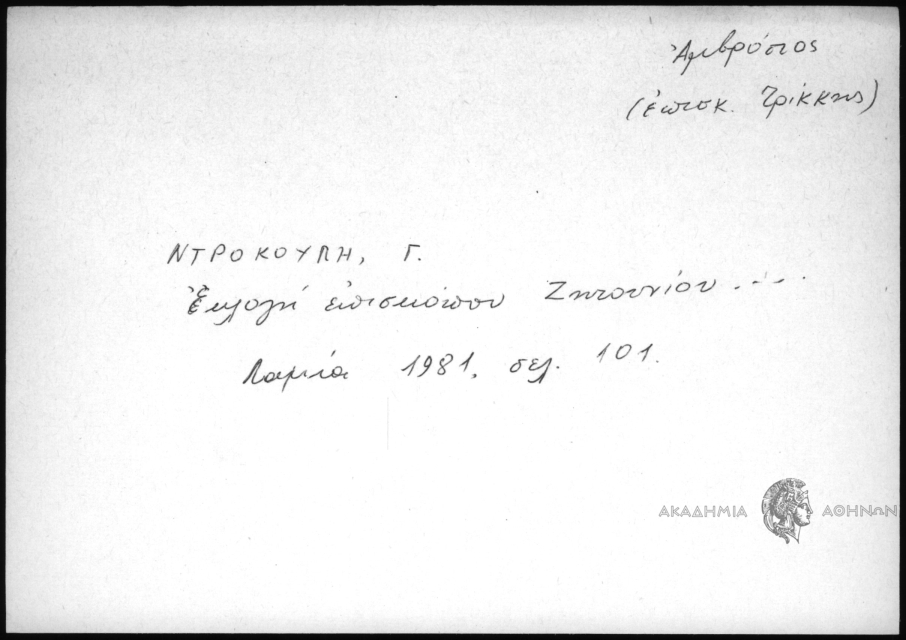 Ἀμβρόσιος
(ἐπισκ. Τρίκκης)
ΝΤΡΟΚΟΥΠΗ, Γ.
Ἐκλογή ἐπισκόπου Ζητουνίου....
Λαμία 1981, σελ. 101.
ΑΚΑΔΗΜΙΑ ΑΘΗΝΩΝ